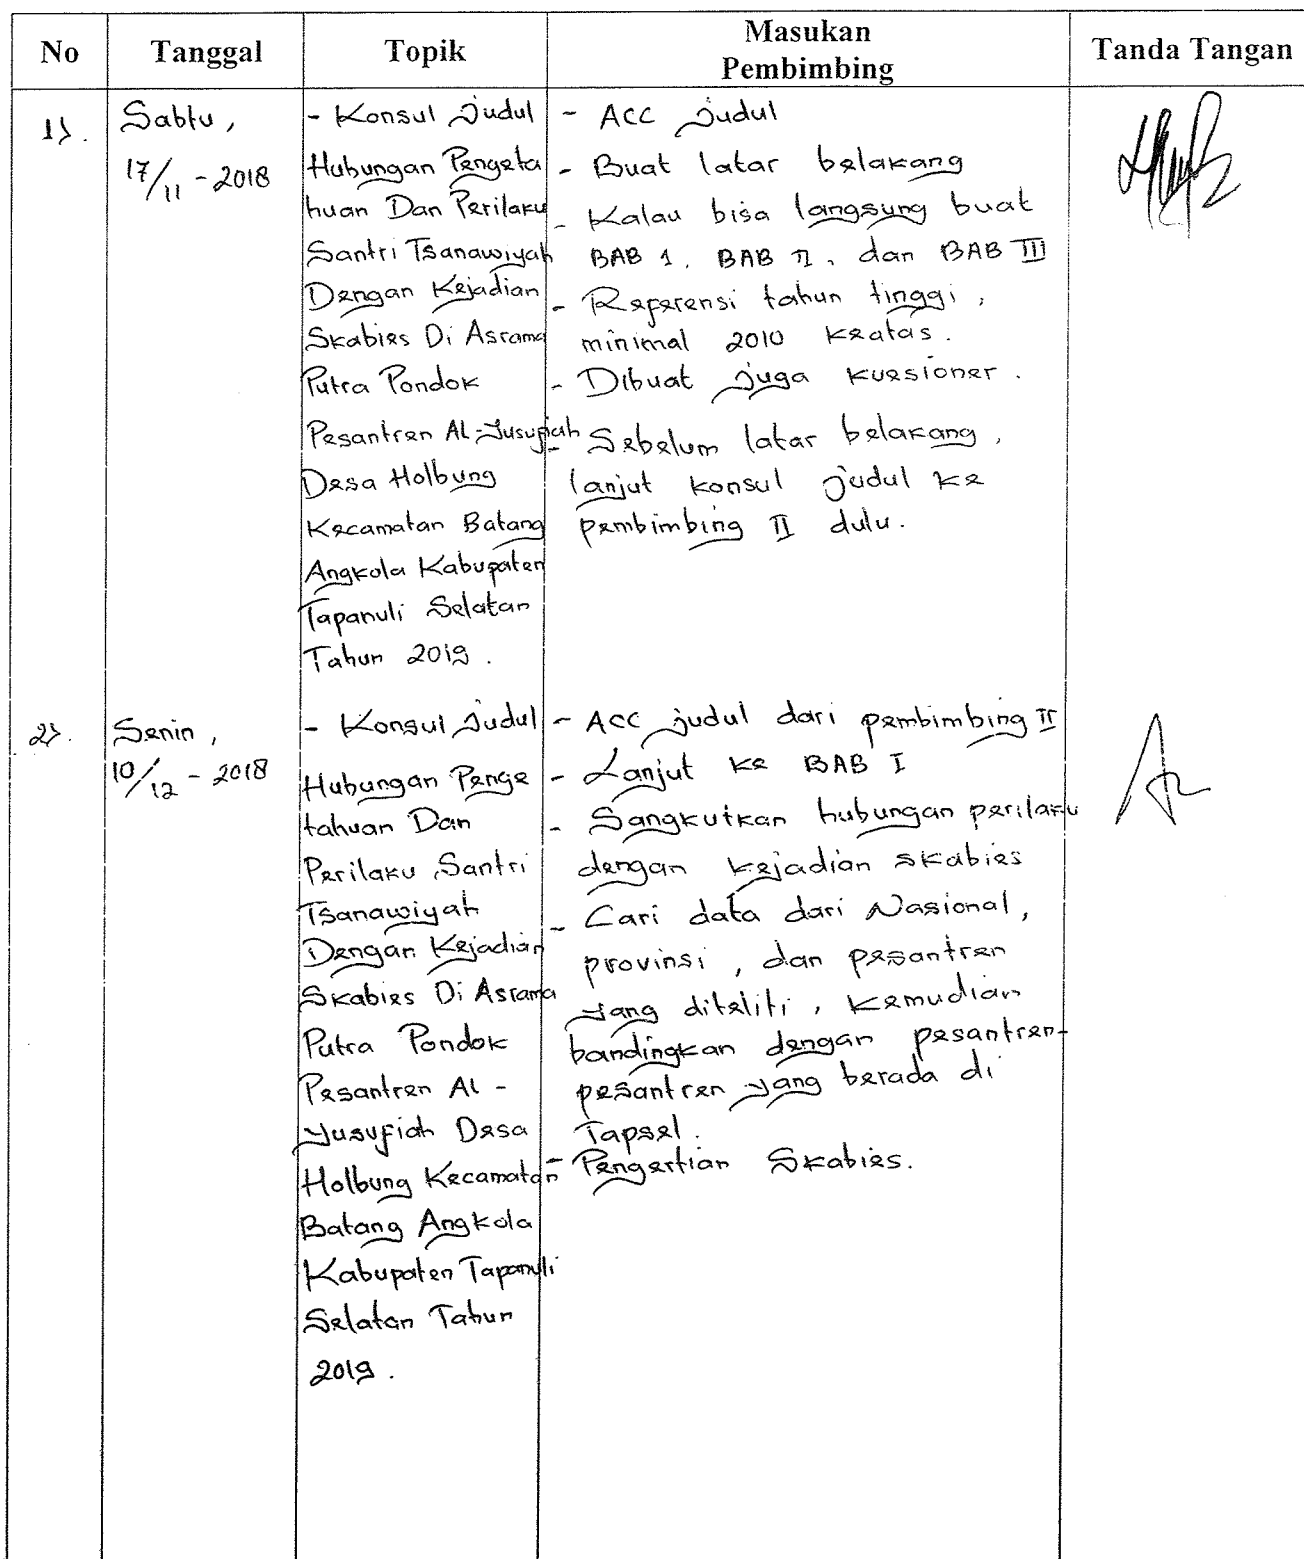 No Tanggal Topik Masukan Pembimbing Tanda Tangan
1).
Sabtu,
17/11 - 2018
- Konsul Judul
Hubungan Pengeta
huan Dan Perilaku
Santri Tsanawiyah
Dengan Kejadian
Skabies Di Asrama
Putra Pondok
Pesantren Al-Yusufiah
Desa Holbung
Kecamatan Batang
Angkola Kabupaten
Tapanuli Selatan
Tahun 2019.
- ACC Judul
- Buat latar belakang
- Kalau bisa langsung buat
BAB 1, BAB II, dan BAB III
- Referensi tahun tinggi,
minimal 2010 keatas.
- Dibuat juga kuesioner.
- Sebelum latar belakang,
lanjut konsul judul ke
pembimbing II dulu.
2).
Senin,
10/12 - 2018
- Konsul Judul
Hubungan Penge
tahuan Dan
Perilaku Santri
Tsanawiyah
Dengan Kejadian
Skabies Di Asrama
Putra Pondok
Pesantren Al -
Yusufiah Desa
Holbung Kecamatan
Batang Angkola
Kabupaten Tapanuli
Selatan Tahun
2019.
- ACC judul dari pembimbing II
- Lanjut ke BAB I
- Sangkutkan hubungan perilaku
dengan kejadian skabies
- Cari data dari Nasional,
provinsi, dan pesantren
yang diteliti, kemudian
bandingkan dengan pesantren-
pesantren yang berada di
Tapsel.
- Pengertian Skabies.